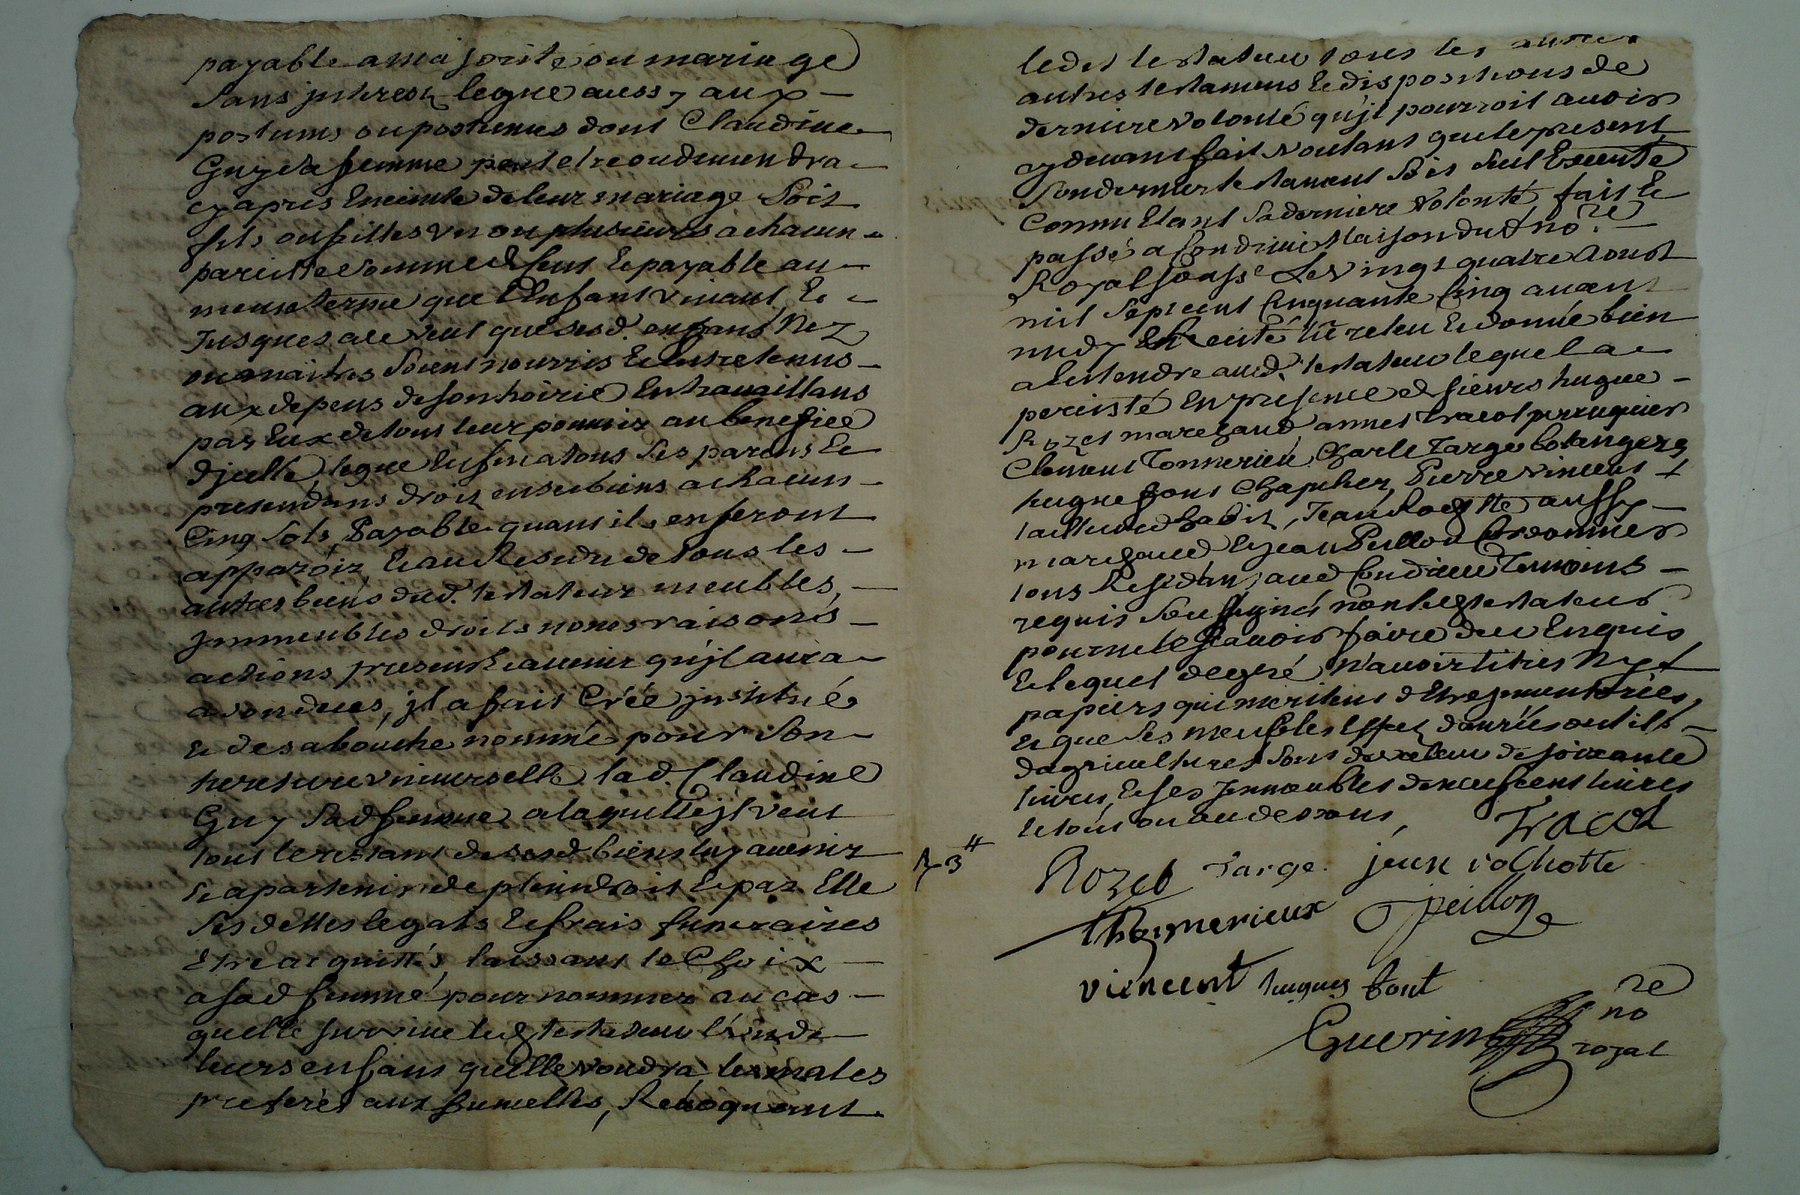 payable a majorité ou mariage
sans jnterest, legue aussy aux
postumes ou postumes dont Claudine
Guy sa femme peut etre ou deviendra
cy apres Enceinte de leur mariage soit
fils ou filles un ou plusieurs a chacun
pareille somme de cent & payable au
meme terme que l'Enfant vivant &
Jusques a ce veut que sesd. enfans Nez
ou a naitre soient nourris & entretenus
aux depens de son hoirie En travaillans
par Eux de tout leur pouvoir au benefice
d'jcelle, legue Enfin a tous ses parens &
pretendans droit en ses biens a chacun
Cinq sols Payable quant ils en feront
apparoir, & au Residu de tous les
autres biens dud. testateur meubles,
jmmeubles droits noms raisons
actions presents & avenir qu'jl aura
a son deces, jl a fait Créé jnstitué
& de sa bouche nommé pour son
heretiere universelle lad. Claudine
Guy sad. femme a laquelle jl veut
tout le restant de sesd. biens luy avenir
& apartenir de plein droit & par Elle
ses dettes legats & frais funeraires
Etre acquittés, laissant le Choix
a sad. femme pour nommer au cas
quelle survive led. testateur l'un de
leurs enfans quelle voudra, les males
preferés aux fumelles, Revoquant
ledit testateur tous les
autres testamens & dispositions de
derniere volonté qu'jl pourroit avoir
cy devant fait voulant que le present
son dernier testament sois seul Executé
Comme Etant sa derniere volonté, fait &
passé a Condrieu Maison du no.re
Royal soussé. Le vingt quatre Aoust
mil sept cent Cinquante Cinq avant
midy & Recité lû releu & donné bien
a Entendre aud. testateur lequel a
persisté En presence de sieurs hugue
Rozet marchand annet tracol perruquier
Clement Tonnerieu, Charle Targe bolanger
hugue font Chapelier, Pierre vincent
tailleur d'habit, Jean Rochette aussy
marchand & Jean Peillon Cordonnier
tous Residans aud. Condrieu Temoins
requis soussignés non led. testateur
pour ne le sçavoir faire de ce Enquis
& lequel de gré n'avoir titres Ny
papiers qui meritent d'Etre jnventoriés,
& que ses meubles Effets danrées outils
d'agricultures sont de valeur de soixante
livres, & ses Jmmeubles de neuf cent livres
& tout ou au dessous,
Tracol
73#
Rozet Targe. jean rochette
Thonnerieux peillon
viencent hugues font
Guerin no re
royal